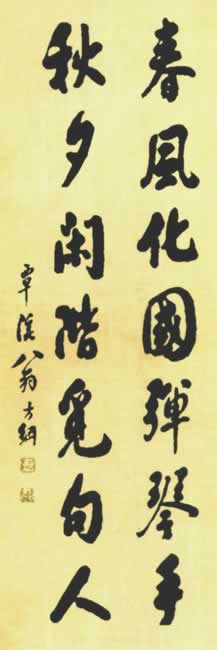 春風化國彈琴手
秋夕閑階覓句人
覃溪翁方綱